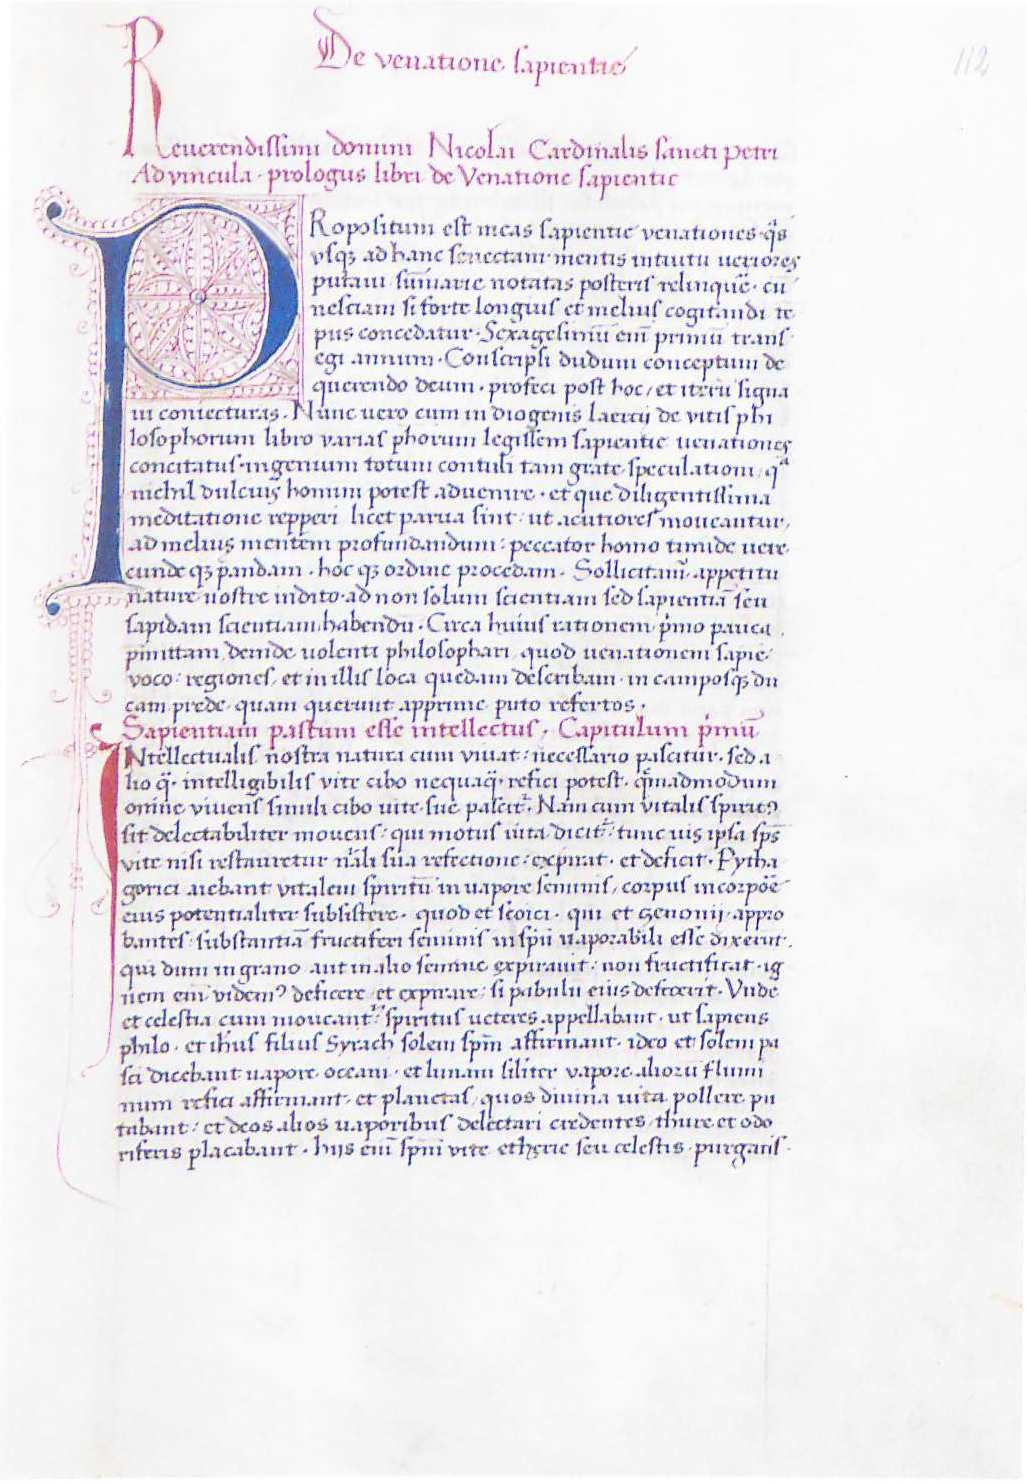 De venatione sapientie
112
Reverendissimi domini Nicolai Cardinalis sancti petri
Ad vincula · prologus libri de Venatione sapientie
PRopositum est meas sapientie venationes · q̃s
vsq3 ad hanc senectam mentis intuitu veriores
putaui sum̄arie notatas posteris relinque᷑ · cū
nesciam si forte longius et melius cogitandi tē
pus concedatur · Sexagesimū em̄ primū trans
egi annum · Conscripsi dudum conceptum de
querendo deum · profeci post hoc / et iterū signa
ui coniecturas · Nunc uero cum in diogenis laercij de vitis phi
losophorum libro varias ph̄orum legissem sapientie venationes
concitatus · ingenium totum contuli tam grate speculationi / qᵃ
nichil dulcius homini potest aduenire · et que diligentissima
meditatione repperi licet parua sint : ut acutiores moueantur /
ad melius mentem profundandum : peccator homo timide uere
cunde q3 pandam · hoc q3 ordine procedam · Sollicitamr̄ appetitu
nature nostre indito · ad non solum scientiam sed sapientiā seu
sapidam scientiam habendū · Circa huius rationem p̄mo pauca
p̄mittam deinde uolenti philosophari quod uenationem sapīe
voco : regiones et in illis loca quedam describam · in camposq3 du
cam prede quam querunt apprime puto refertos ·
Sapientiam pastum esse intellectus · Capitulum p̄mū
INtellectualis nostra natura cum viuat : necessario pascitur · sed a
lio q̃ · intelligibilis vite cibo nequaq̃ · refici potest · q̃nadmodum
omne viuens simili cibo vite sue pascitr̄ · Nam cum vitalis spirit9
sit delectabiliter mouens : qui motus uita dicitr̄ : tunc uis ipsa sp̄s
vite nisi restauretur n̄ali sua refectione : expirat · et deficit · Pytha
gorici aiebant vitalem spiritū in uapore seminis / corpus in corpōe
eius potentialiter subsistere · quod et stoici · qui et zenonij · appro
bantes : substantiā fructiferi seminis in sp̄u uaporabili esse dixerūt
qui dum in grano aut in alio semine expirauit : non fructificat · ig
nem em̄ videm9 deficere et expirare : si pabulū eius defecerit · Vnde
et celestia cum moueantr̄ : spiritus ueteres appellabant · ut sapiens
philo · et ih̄us filius Syrach solem sp̄m affirmant · ideo et solem pa
sci dicebant uapore oceani · et lunam siliter vapore aliorū flumi
num refici affirmant · et planetas / quos diuina uita pollere pu
tabant : et deos alios uaporibus delectari credentes / thure et odo
riferis placabant · hijs em̄ sp̄m vite etheree seu celestis purgatis ·